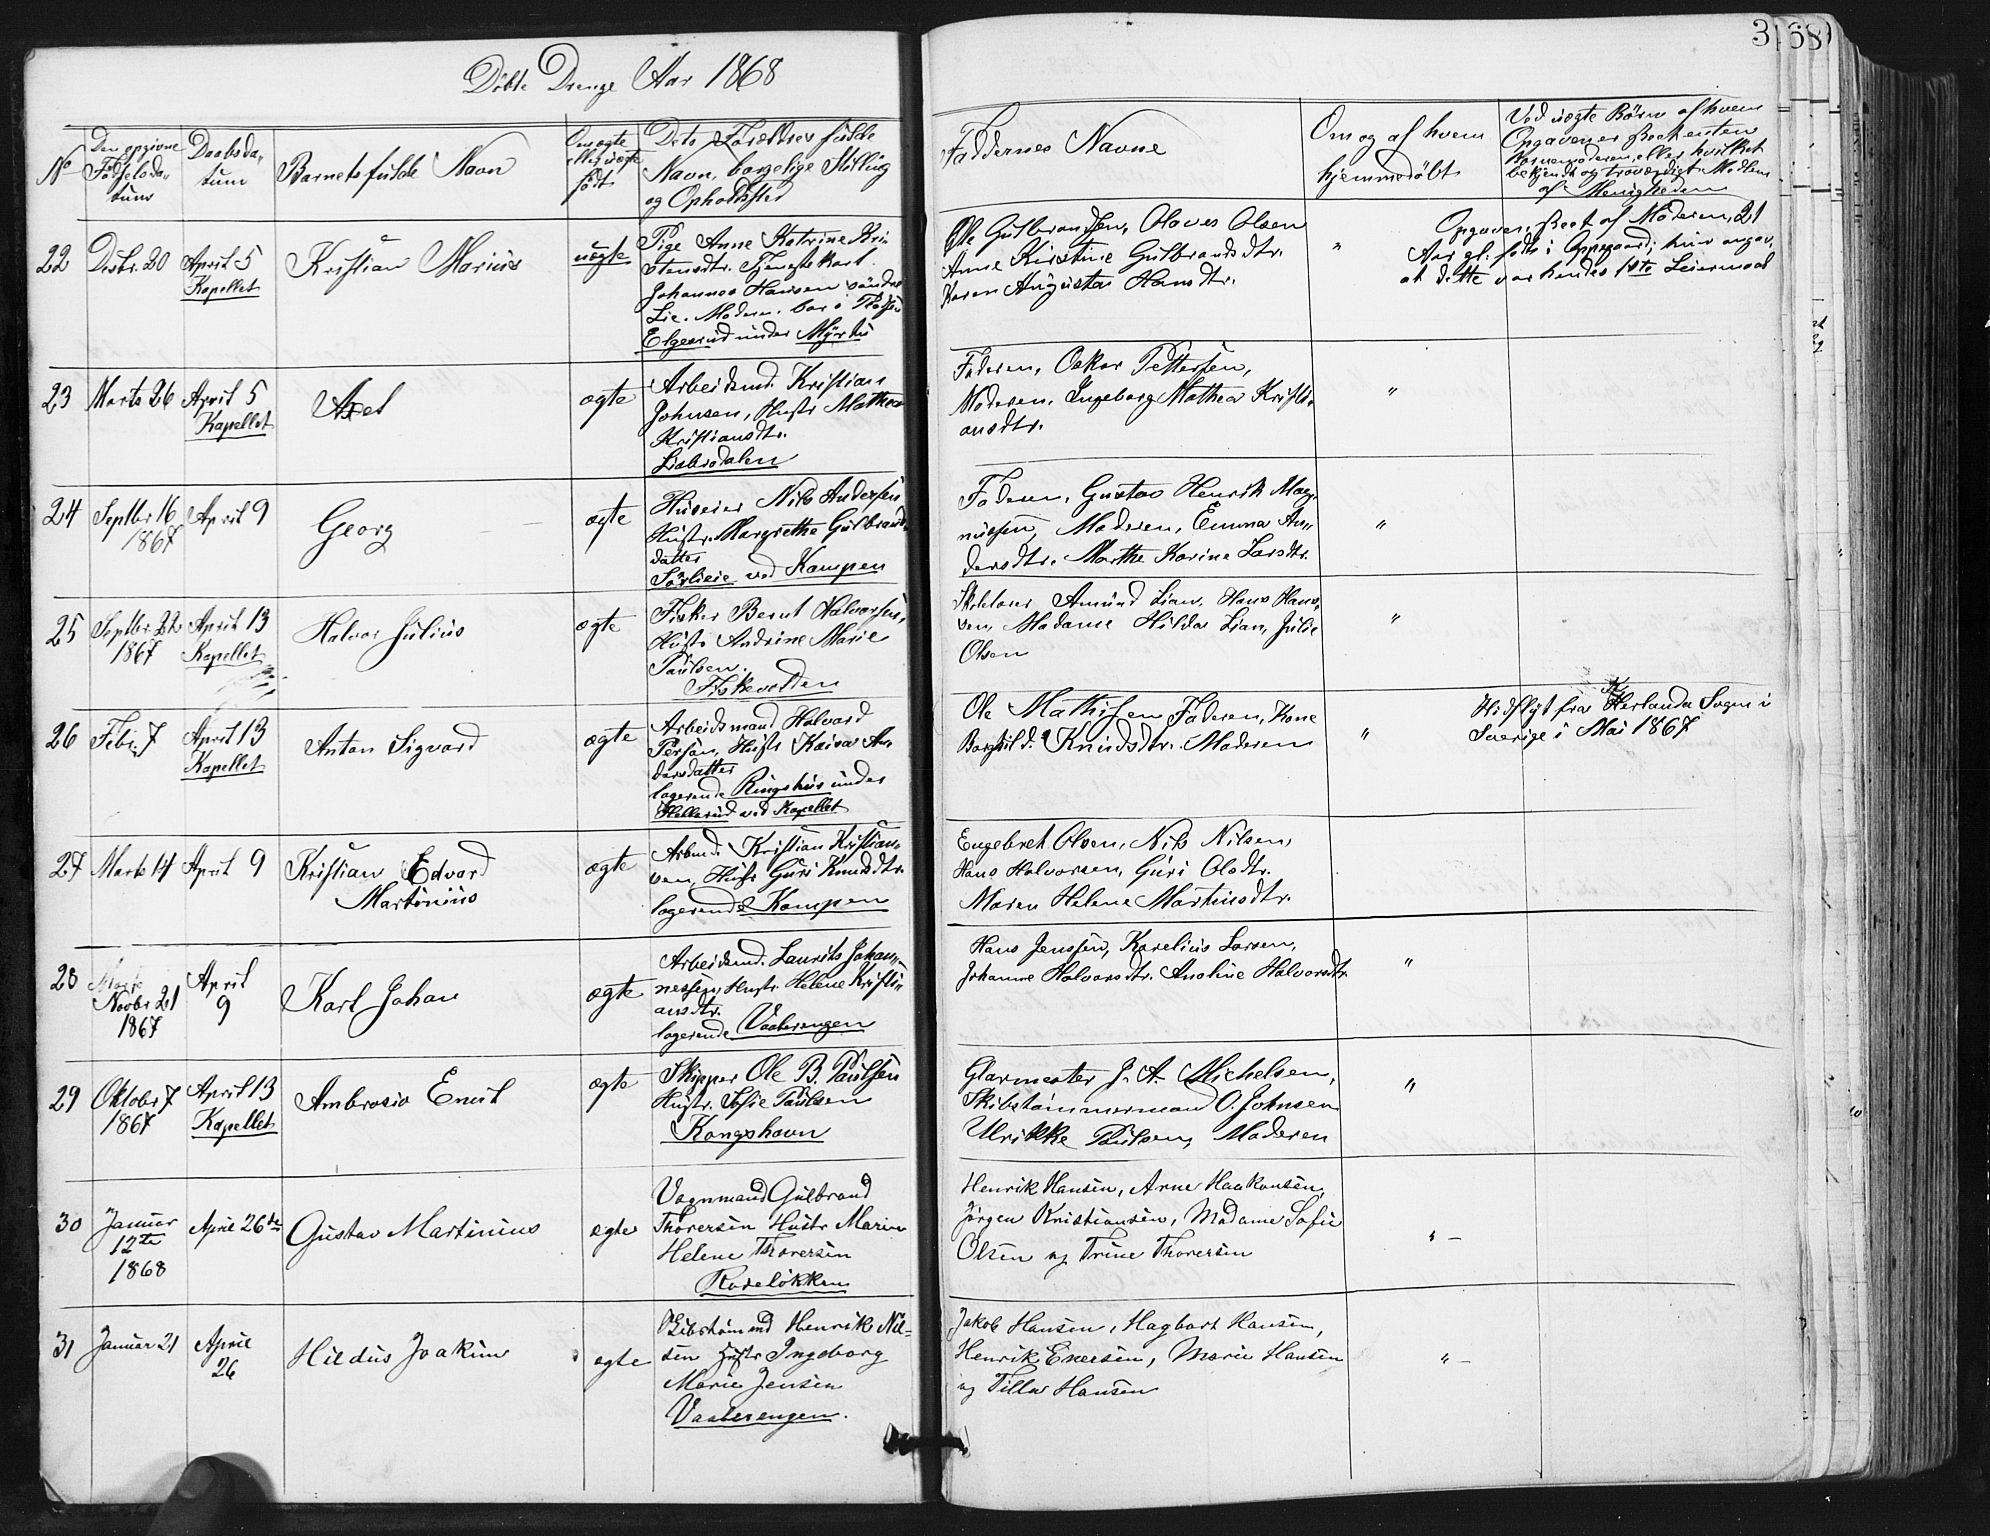 Döbte Drenge Aar 1868
3
68
No
Den opgivne Fødselsdatum
Daabsdatum
Barnets fulde Navn
Om ægte eller uægte født
Dets Forældres fulde Navn, borgelige Stilling og Opholdsted
Faddernes Navne
Om og af hvem hjemmedöbt
Ved uægte Börn af hvem Opgaven er
bekjendt og troværdigt Medlem af Menigheden
22 Desbr. 20 April 5 Kapellet
Kristian Marius
uægte
Pige Anne Katrine Kri-
stensdtr. Tjenestekarl
Johannes Hansen söndre
Lie. Moderen bor i
Elgesrud under
Ole Gulbrandsen, Olaves Olsen
Anne Kirstine Gulbrandsdtr.
Karen Augusta Hansdtr.
"
Opgaven, Beet af Moderen, 21
Aar gl. født i Oppegaard; hun angav,
at dette var hendes 1ste Leiermaal
23 Marts 26 April 5 Kapellet
Axel
ægte
Arbeidsmd. Kristian
Johnsen, Hustr. Mathea
Kristiansdtr.
Liabrodalen
Faderen, Oskar Pettersen,
Moderen, Ingeborg Mathea Kristi-
ansdtr.
"
24 Septbr 16 1867 April 9
Georg
ægte
Huseier Nils Andersen
Hustr. Margrethe Gulbrands-
datter
ved Kampen
Faderen, Gustav Henrik Mag-
nussen, Moderen, Emma An-
dersdtr. Marthe Karine Larsdtr.
"
25 Septbr 22 1867 April 13 Kapellet
Halvor Julius
ægte
Fisker Bernt Halvorsen,
Hustr Andrine Marie
Paulsen.
Fiskevolden
Skolelærer Amund Lian, Hans Han-
sen, Madame Hilda Lian, Julie
Olsen
"
26 Febr. 7 April 13 Kapellet
Anton Sigvard
ægte
Arbeidsmand Halvard
Persön, Hustr Kaisa An-
dersdatter
logerende Ringshus under
Hellerud ved Kapellet
Ole Mathisen Faderen, Kone
Borghild Knudsdtr. Moderen
"
Hidflyt fra Herlanda Sogn i
Sverige i Mai 1867
27 Marts 14 April 9
Kristian Edvard
Martinius
ægte
Arbmd. Kristian Kristian-
sen, Hustr Guri Knudsdtr.
logerende Kampen
Engebret Olsen, Nils Nilsen,
Hans Halvorsen, Guri Olsdtr.
Maren Helene Martinsdtr.
28 Novbr 21 1867 April 9
Karl Johan
ægte
Arbeidsmd. Laurits Johan-
nessen, Hustr. Helene Kristi-
ansdtr.
logerende Vaalerengen
Hans Jenssen, Karelius Larsen,
Johanne Halvorsdtr. Anoline Halvorsdtr.
"
29 Oktobr 7 1867 April 13 Kapellet
Ambrosio Emil
ægte
Skipper Ole B. Paulsen
Hustr. Sofie Paulsen
Kongshavn
Glarmester J. A. Michelsen,
Skibstømmermand O. Johnsen
Ulrikke Paulsen, Moderen
"
30 Januar 12te 1868 April 26de
Gustav Martinius
ægte
Vognmand Gulbrand
Thoresen Hustr Maria
Helene Thoresen
Rodeløkken
Henrik Hansen, Arne Haakonsen,
Jørgen Kristiansen, Madame Sofie
Olsen og Trine Thoresen
" -
31 Januar 21 April 26
Hildus Joakim
ægte
Skibstømmd Henrik Nil-
sen Hustr Ingeborg
Marie Jensen
Vaalerengen.
Jakob Hansen, Hagbart Hansen,
Henrik Eversen, Marie Hansen
og Tilla Hansen
" -